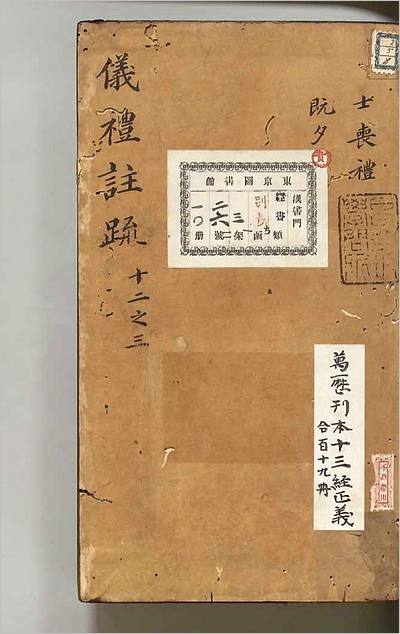 士喪禮
既夕
儀禮註疏
十二之三
東京圖書館
漢書門
經書類
函
三架
號
一〇册
萬曆刊本十三經正義
合百十九冊